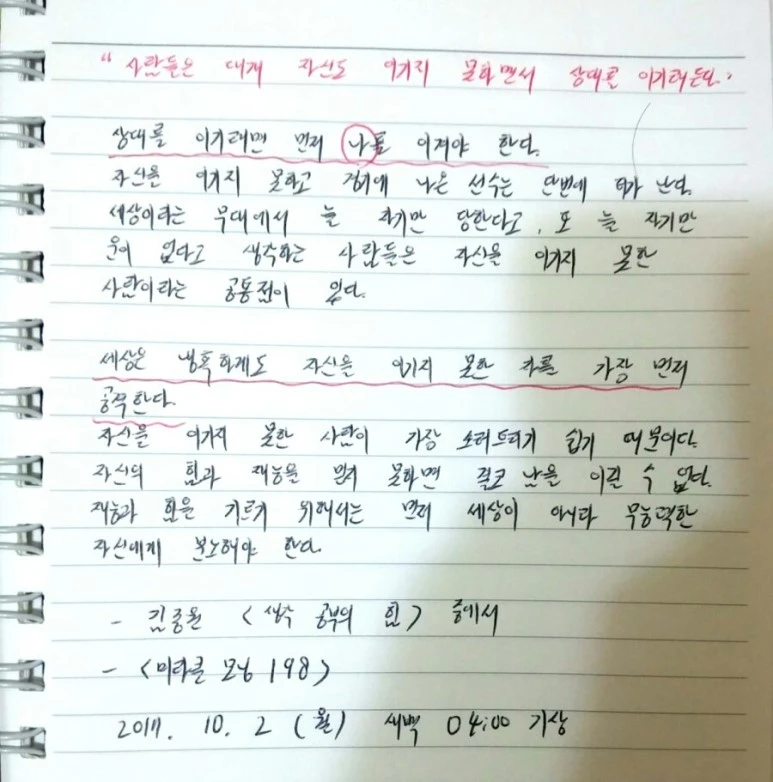 “사람들은 대개 자신도 이기지 못하면서 상대를 이기려든다.”
상대를 이기려면 먼저 나를 이겨야 한다.
자신을 이기지 못하고 경기에 나온 선수는 단번에 티가 난다.
세상이라는 무대에서 늘 자기만 당한다고, 또 늘 자기만
운이 없다고 생각하는 사람들은 자신을 이기지 못한
사람이라는 공통점이 있다.
세상은 냉혹하게도 자신을 이기지 못한 자를 가장 먼저
공격한다.
자신을 이기지 못한 사람이 가장 쓰러트리기 쉽기 때문이다.
자신의 힘과 재능을 믿지 못하면 결코 남을 이길 수 없다.
재능과 힘을 기르기 위해서는 먼저 세상이 아니라 무능력한
자신에게 분노해야 한다.
- 김종원 <생각 공부의 힘> 중에서
- <미라클 모닝 198>
2017. 10. 2 (월) 새벽 04:00 기상